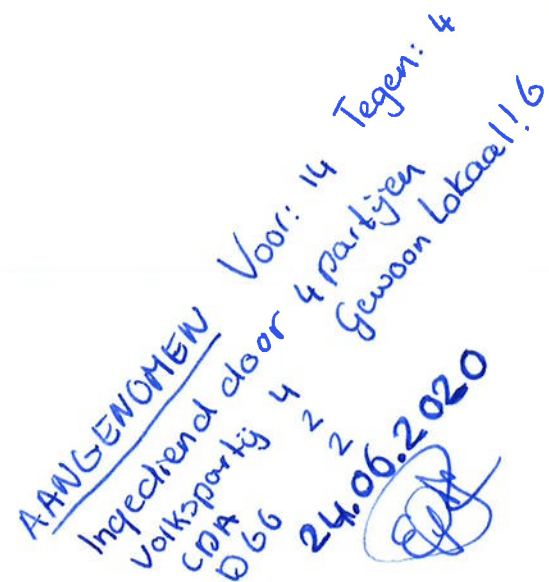 AANGENOMEN Voor: 14 Tegen: 4
Ingediend door 4 partijen
Volkspartij 4 Gewoon Lokaal! 6
CDA 2
D66 2
24.06.2020